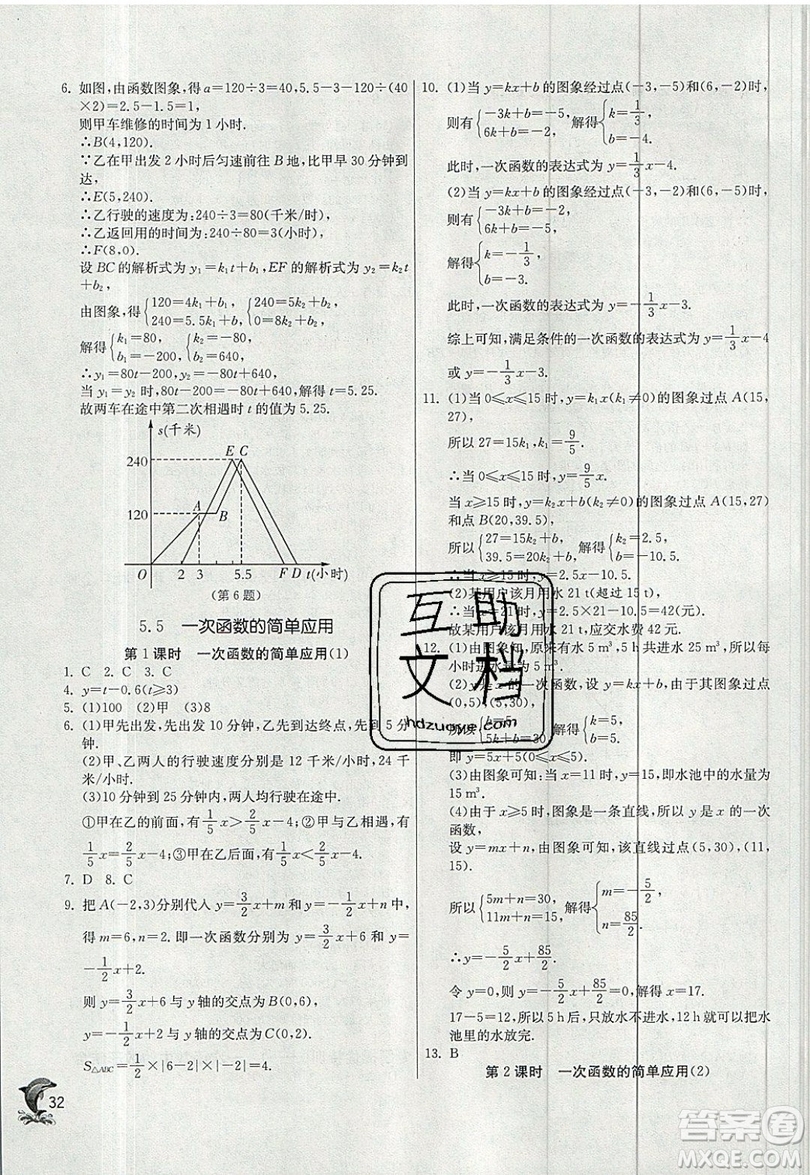 6. 如图,由函数图象,得a=120÷3=40,5.5-3-120÷(40
×2)=2.5-1.5=1(小时).
则甲车维修的时间为1小时.
∴B(4,120).
∵乙在甲出发2小时后匀速前往B地,比甲早30分钟到
达,
∴E(5,240).
∴乙行驶的速度为:240÷3=80(千米/时)
∴乙返回用的时间为:240÷80=3(小时),
∴F(8,0).
设BC的解析式为y₁=k₁t+b₁,EF的解析式为y₂=k₂t
+b₂,
由图象,得{120=4k₁+b₁, 240=5.5k₁+b₁, {240=5k₂+b₂, 0=8k₂+b₂,
解得{k₁=80, b₁=-200, {k₂=-80, b₂=640,
∴y₁=80t-200,y₂=-80t+640,
当y₁=y₂时,80t-200=-80t+640,解得t=5.25.
故两车在途中第二次相遇时t的值为5.25.
s(千米)
240
120
E C
A B
O 2 3 5.5 F D t(小时)
(第6题)
5.5 一次函数的简单应用
第1课时 一次函数的简单应用(1)
1. C 2. C 3. C
4. y=t-0.6(t≥3)
5. (1)100 (2)甲 (3)8
6. (1)甲先出发,先出发10分钟,乙先到达终点,先到5分
钟.
(2)甲、乙两人的行驶速度分别是12千米/时,24千
米/时.
(3)10到25分钟内,两人均行驶在途中.
①甲在乙的前面,有1/5x>2/5x-4;②甲与乙相遇,有
1/5x=2/5x-4;③甲在乙后面,有1/5x<2/5x-4.
7. D 8. C
9. 把A(-2,3)分别代入y=3/2x+m和y=-1/2x+n中,
得m=6,n=2.即一次函数分别为y=3/2x+6和y=
-1/2x+2.
则y=3/2x+6与y轴的交点为B(0,6),
y=-1/2x+2与y轴的交点为C(0,2).
S△ABC=1/2×|6-2|×|-2|=4.
32
10. (1)当y=kx+b的图象经过点(-3,-5)和(6,-2)时,
则有{-3k+b=-5, 6k+b=-2, 解得{k=1/3, b=-4.
此时,一次函数的表达式为y=1/3x-4.
(2)当y=kx+b的图象经过点(-3,-2)和(6,-5)时,
则有{-3k+b=-2, 6k+b=-5,
解得{k=-1/3, b=-3.
此时,一次函数的表达式为y=-1/3x-3.
综上可知,满足条件的一次函数的表达式为y=1/3x-4
或y=-1/3x-3.
11. (1)当0≤x≤15时,设y=k₁x(k₁≠0)的图象过点A(15,
27),
所以27=15k₁,k₁=9/5.
∴当0≤x≤15时,y=9/5x.
当x≥15时,设y=k₂x+b(k₂≠0)的图象过点A(15,27)
和点B(20,39.5),
所以{27=15k₂+b, 39.5=20k₂+b, 解得{k₂=2.5, b=-10.5.
∴当x≥15时,y=2.5x-10.5.
(2)某用户该月用水21 t(超过15 t),
∴当x=21时,y=2.5×21-10.5=42(元).
故某用户该月用水21 t,应交水费42元.
12. (1)由图象知,原有水5 m³,共进水25 m³,所以每
小时进水为5 m³.
(2)
{b=5, 5k+b=30,
即y=5x+5(0≤x≤5).
(3)由图象可知:当x=11时,y=15,即水池中的水量为
15 m³.
(4)由于x≥5时,图象是一条直线,所以y是x的一次
函数,
设y=mx+n,由图象可知,该直线过点(5,30),(11,
15).
所以{5m+n=30, 11m+n=15, 解得{m=-5/2, n=85/2.
∴y=-5/2x+85/2.
令y=0,则-5/2x+85/2=0,解得x=17.
17-5=12,所以5 h后,只放水不进水,12 h可以把水
池里的水放完.
13. B
第2课时 一次函数的简单应用(2)
互助
文档
hdzuoye.com
答案圈
MXQE.COM